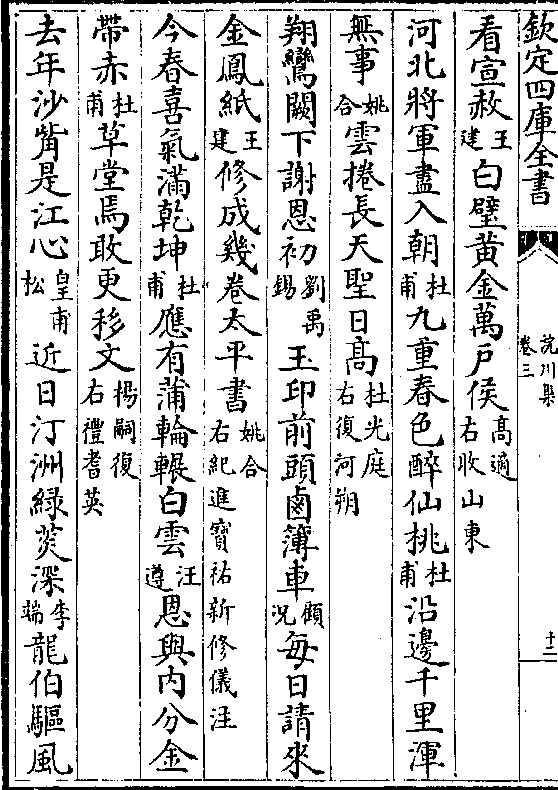 欽定四庫全書
浣川集
卷三
十二
看宣赦王建白璧黄金萬戶侯髙適右收山東
河北將軍盡入朝杜甫九重春色醉仙桃杜甫沿邊千里渾
無事姚合雲捲長天聖日髙杜光庭右復河朔
翔鸞闕下謝恩初劉禹錫玉印前頭鹵簿車顧況每日請來
金鳳紙王建修成幾卷太平書姚合右紀進寶祐新修儀注
今春喜氣滿乾坤杜甫應有蒲輪輾白雲汪遵恩與内分金
帶赤杜甫草堂焉敢更移文楊嗣復右禮耆英
去年沙觜是江心皇甫松近日汀洲緑茭深李端龍伯驅風